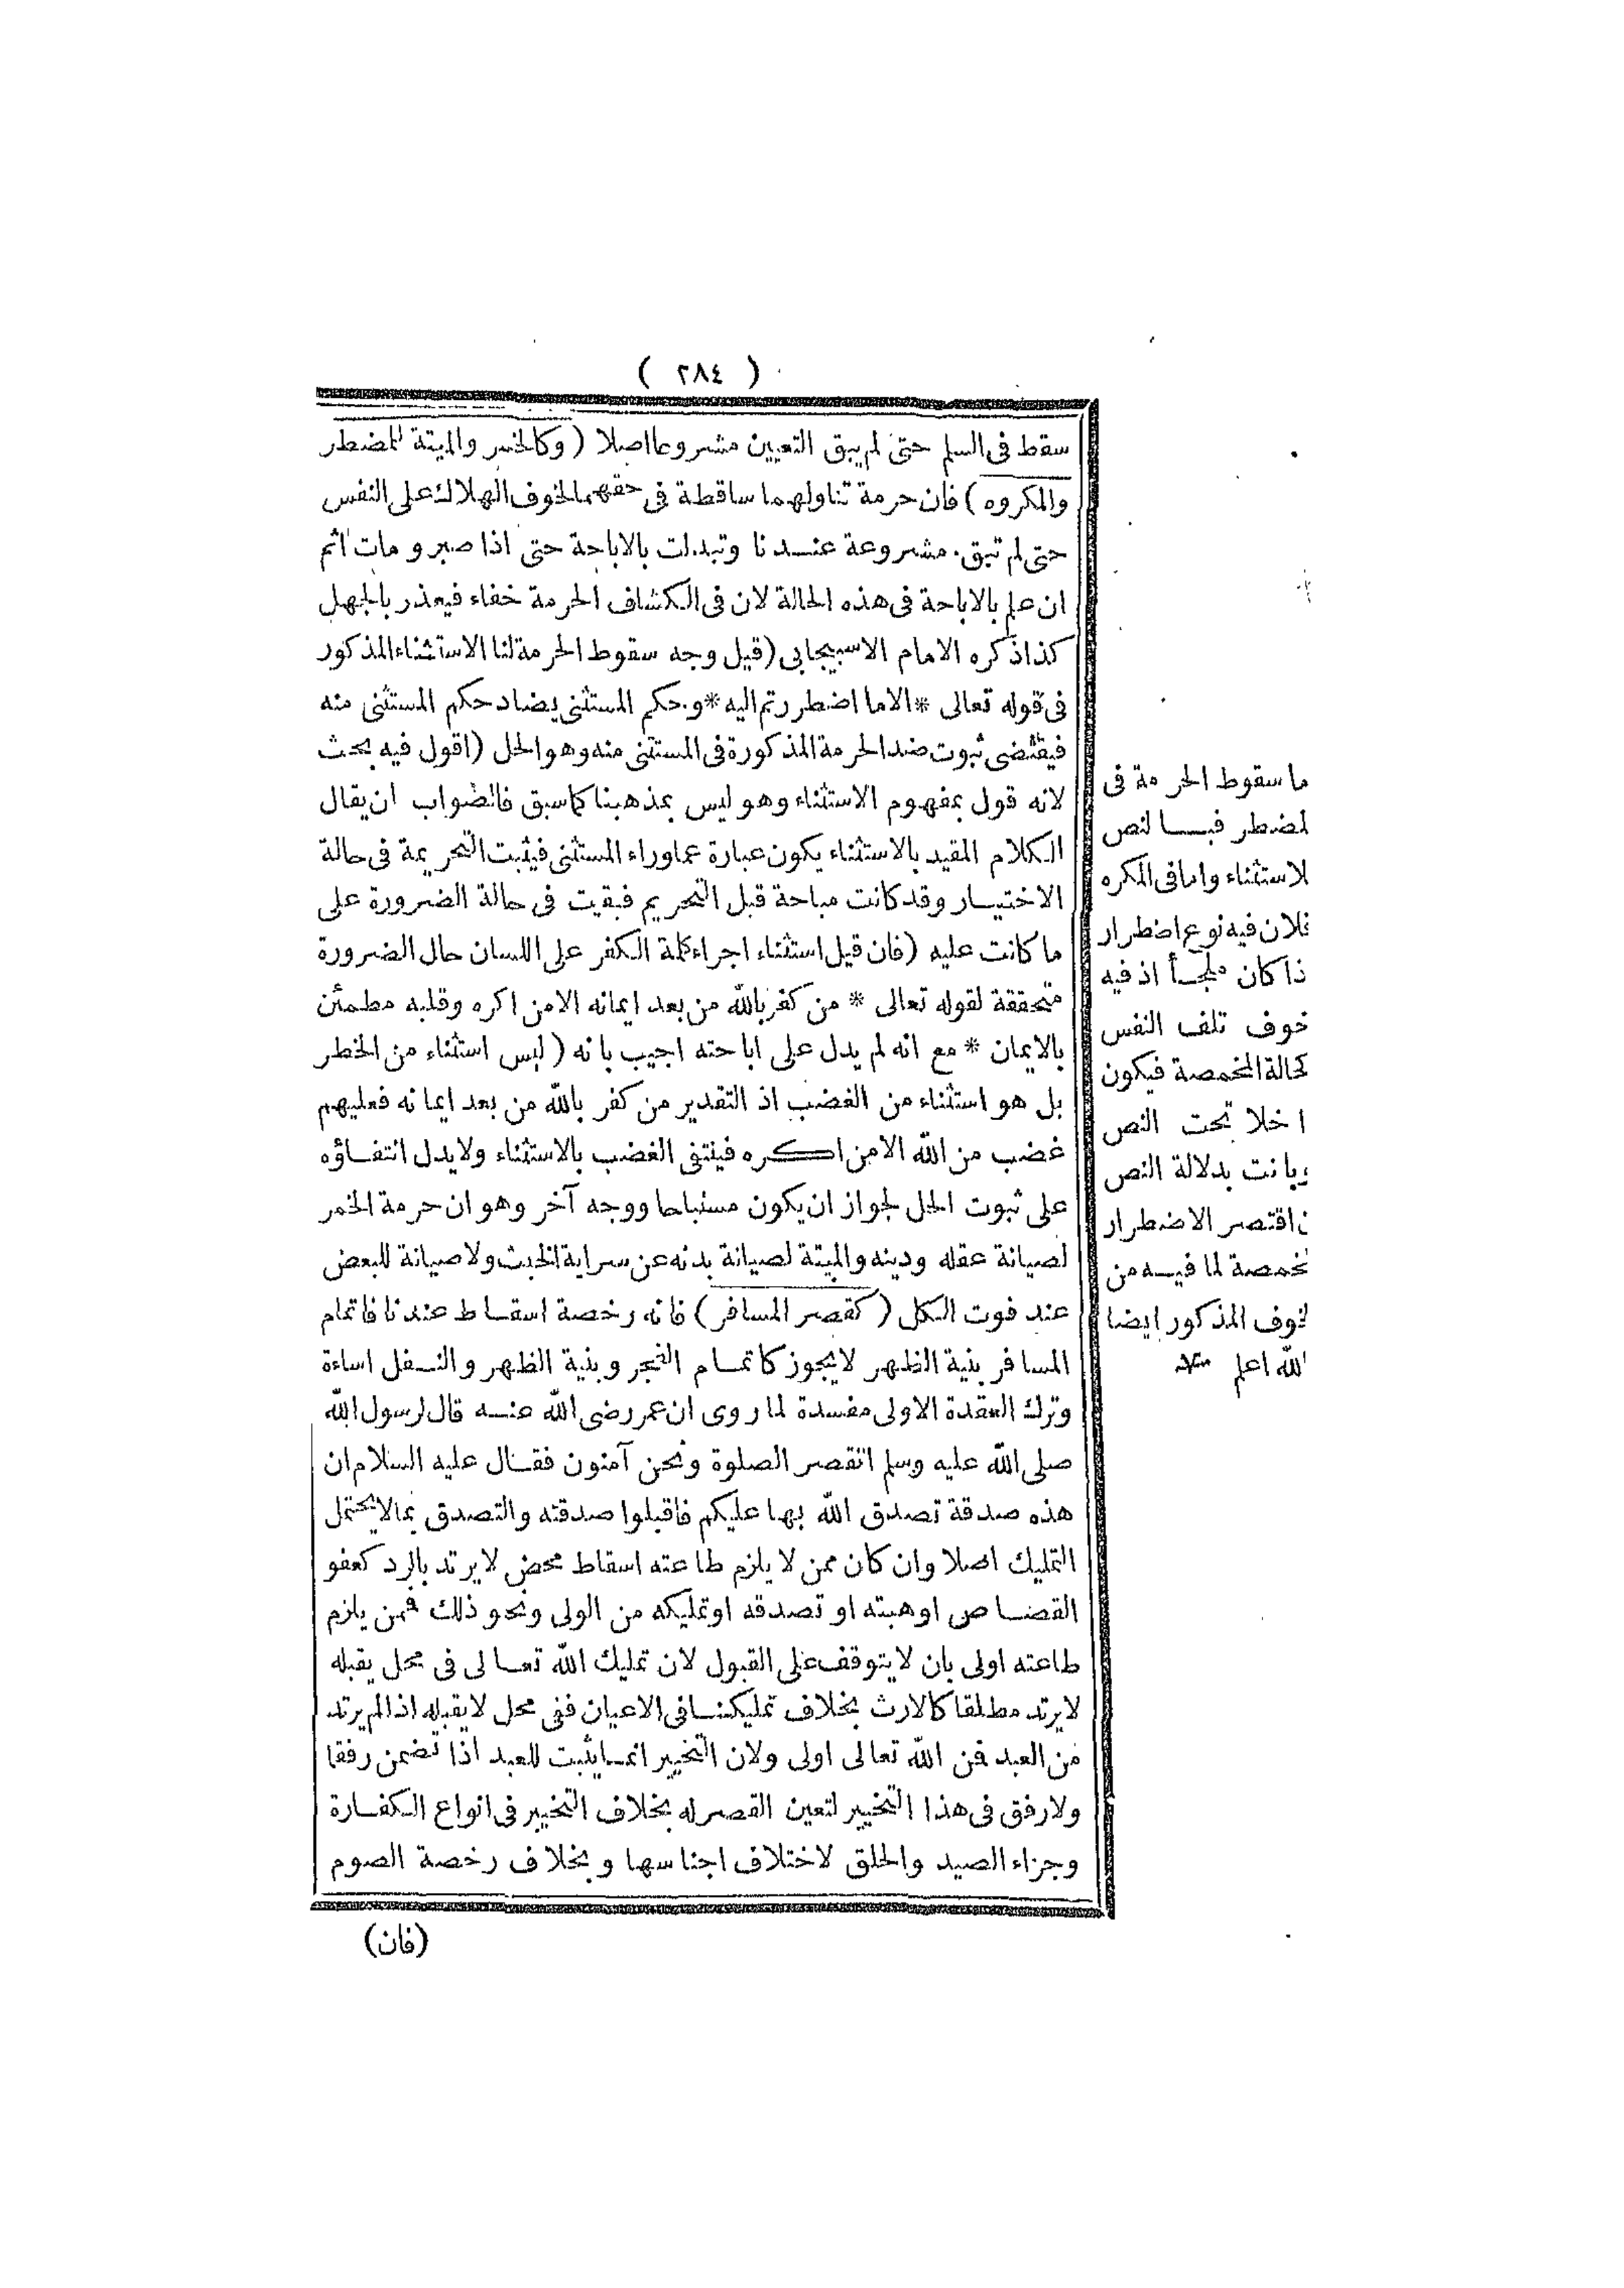 ( ٢٨٤ )
سقط فى السلم حتى لم يبق التعيين مشروعا اصلا ( وكالخمر والميتة للمضطر
والمكروه ) فان حرمة تناولهما ساقطة فى حقهما لخوف الهلاك على النفس
حتى لم تبق مشروعة عندنا وتبدلت بالاباحة حتى اذا صبر ومات اثم
ان علم بالاباحة فى هذه الحالة لان فى الكشاف الحرمة خفاء فيعذر بالجهل
كذا ذكره الامام الاسبيجابى ( قيل وجه سقوط الحرمة لنا الاستثناء المذكور
فى قوله تعالى * الا ما اضطررتم اليه * وحكم المستثنى يضاد حكم المستثنى منه
فيقتضى ثبوت ضد الحرمة المذكورة فى المستثنى منه وهو الحل ( اقول فيه بحث
لانه قول بمفهوم الاستثناء وهو ليس بمذهبنا كما سبق فالصواب ان يقال
الكلام المقيد بالاستثناء يكون عبارة عما وراء المستثنى فيثبت التحريمة فى حالة
الاختيار وقد كانت مباحة قبل التحريم فبقيت فى حالة الضرورة على
ما كانت عليه ( فان قيل استثناء اجراء كلمة الكفر على اللسان حال الضرورة
متحققة لقوله تعالى * من كفر بالله من بعد ايمانه الا من اكره وقلبه مطمئن
بالايمان * مع انه لم يدل على اباحته اجيب بانه ( ليس استثناء من الخطر
بل هو استثناء من الغضب اذ التقدير من كفر بالله من بعد ايمانه فعليهم
غضب من الله الا من اكره فينتفى الغضب بالاستثناء ولا يدل انتفاؤه
على ثبوت الحل لجواز ان يكون مستباحا ووجه آخر وهو ان حرمة الخمر
لصيانة عقله ودينه والميتة لصيانة بدنه عن سراية الخبث ولا صيانة للبعض
عند فوت الكل ( كقصر المسافر ) فانه رخصة اسقاط عندنا فاتمام
المسافر بنية الظهر لا يجوز كاتمام الفجر وبنية الظهر والنفل اساءة
وترك العقدة الاولى مفسدة لما روى ان عمر رضى الله عنه قال لرسول الله
صلى الله عليه وسلم انقصر الصلوة ونحن آمنون فقال عليه السلام ان
هذه صدقة تصدق الله بها عليكم فاقبلوا صدقته والتصدق بما لا يحتمل
التمليك اصلا وان كان ممن لا يلزم طاعته اسقاط محض لا يرتد بالرد كعفو
القصاص او هبته او تصدقه او تمليكه من الولى ونحو ذلك فمن يلزم
طاعته اولى بان لا يتوقف على القبول لان تمليك الله تعالى فى محل يقبله
لا يرتد مطلقا كالارث بخلاف تمليكنا فى الاعيان ففى محل لا يقبله اذا لم يرتد
من العبد فمن الله تعالى اولى ولان التخيير انما يثبت للعبد اذا تضمن رفقا
ولا رفق فى هذا التخيير لتعين القصر له بخلاف التخيير فى انواع الكفارة
وجزاء الصيد والحلق لاختلاف اجناسها وبخلاف رخصة الصوم
(فان)
ما سقوط الحرمة فى
لمضطر فبالنص
لاستثناء واما فى المكره
فلان فيه نوع اضطرار
ذا كان ملجأ اذ فيه
خوف تلف النفس
كحالة المخمصة فيكون
اخلا تحت النص
بانت بدلالة النص
ن اقتصر الاضطرار
لخمصة لما فيه من
لخوف المذكور ايضا
لله اعلم منه